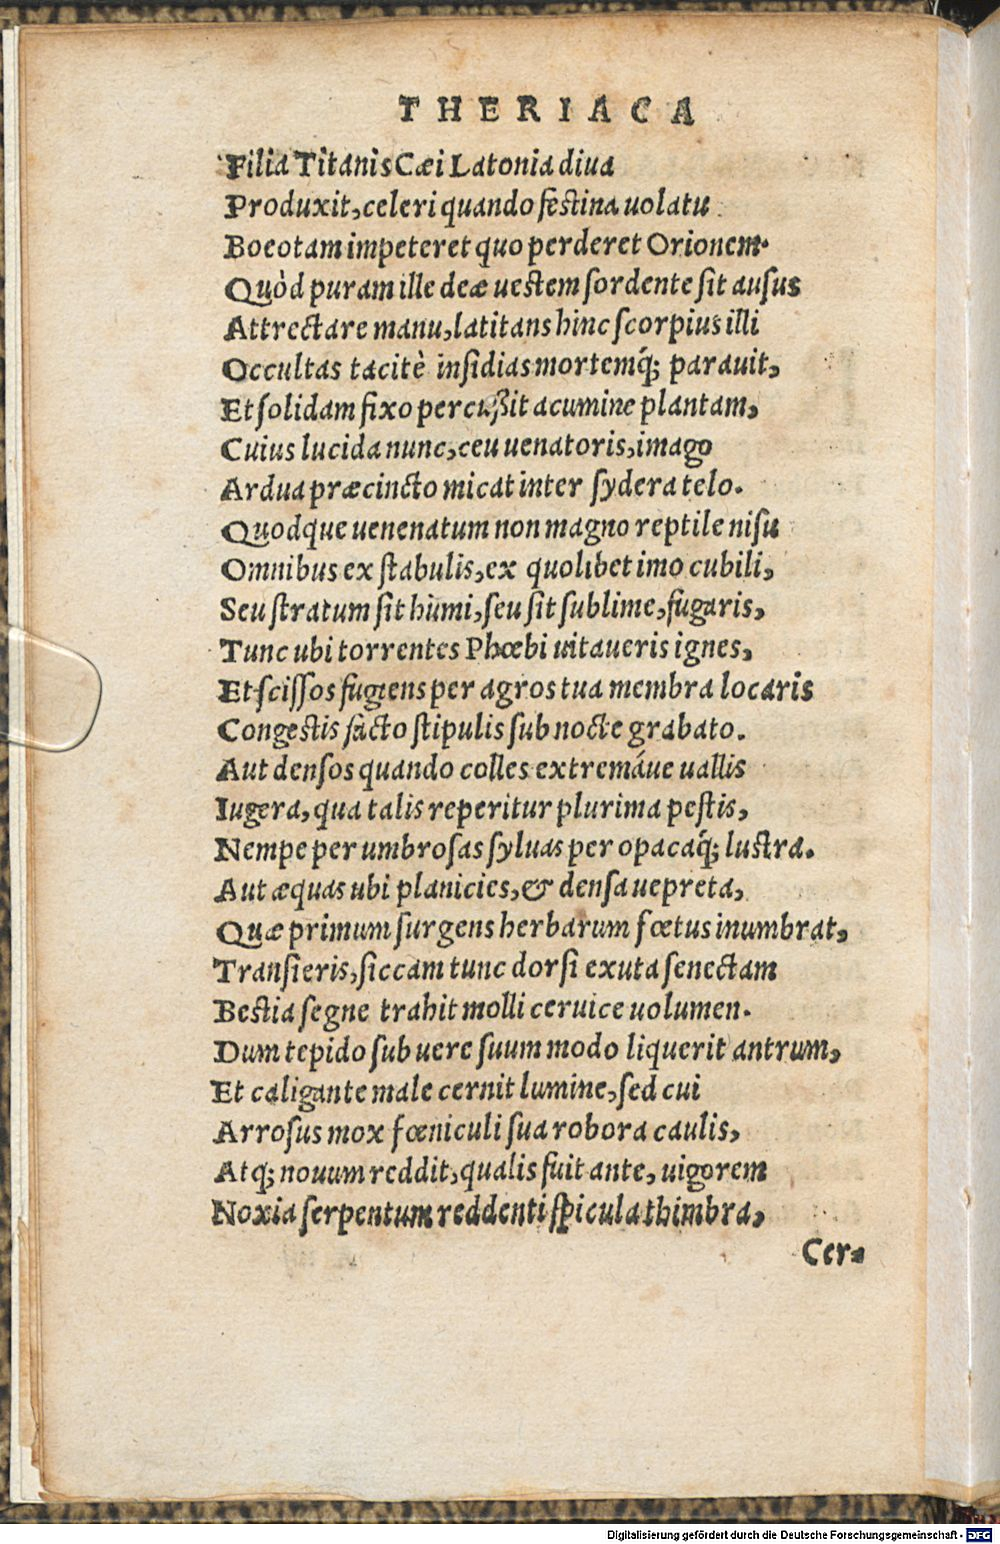 THERIACA
Filia Titanis Cæi Latonia diua
Produxit, celeri quando festina uolatu
Boeotam impeteret quo perderet Orionem.
Quòd puram ille deæ uestem sordente sit ausus
Attrectare manu, latitans hinc scorpius illi
Occultas tacitè insidias mortemq́; parauit,
Et solidam fixo percußit acumine plantam,
Cuius lucida nunc, ceu uenatoris, imago
Ardua præcincto micat inter sydera telo.
Quodque uenenatum non magno reptile nisu
Omnibus ex stabulis, ex quolibet imo cubili,
Seu stratum sit humi, seu sit sublime, fugaris,
Tunc ubi torrentes Phœbi uitaueris ignes,
Et scissos fugiens per agros tua membra locaris
Congestis facto stipulis sub nocte grabato.
Aut densos quando colles extremáue uallis
Iugera, qua talis reperitur plurima pestis,
Nempe per umbrosas syluas per opacaq́; lustra.
Aut æquas ubi planicies, & densa uepreta,
Quæ primum surgens herbarum fœtus inumbrat,
Transieris, siccam tunc dorsi exuta senectam
Bestia segne trahit molli ceruice uolumen.
Dum tepido sub uere suum modo liquerit antrum,
Et caligante male cernit lumine, sed cui
Arrosus mox fœniculi sua robora caulis,
Atq; nouum reddit, qualis fuit ante, uigorem
Noxia serpentum reddenti spicula thimbra,
Cer-
Digitalisierung gefördert durch die Deutsche Forschungsgemeinschaft - DFG